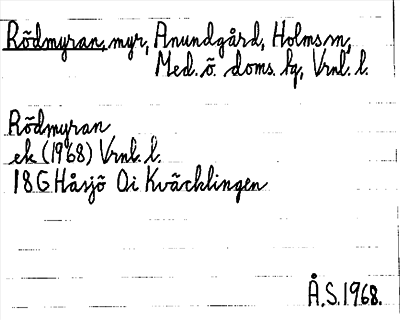 Rödmyran, myr, Anundgård, Holms sn,
Med. ö. doms. hg, Vrnl. l.
Rödmyran
ek (1968) Vrnl. l.
18G Håsjö Oi Kväcklingen
Å.S. 1968.